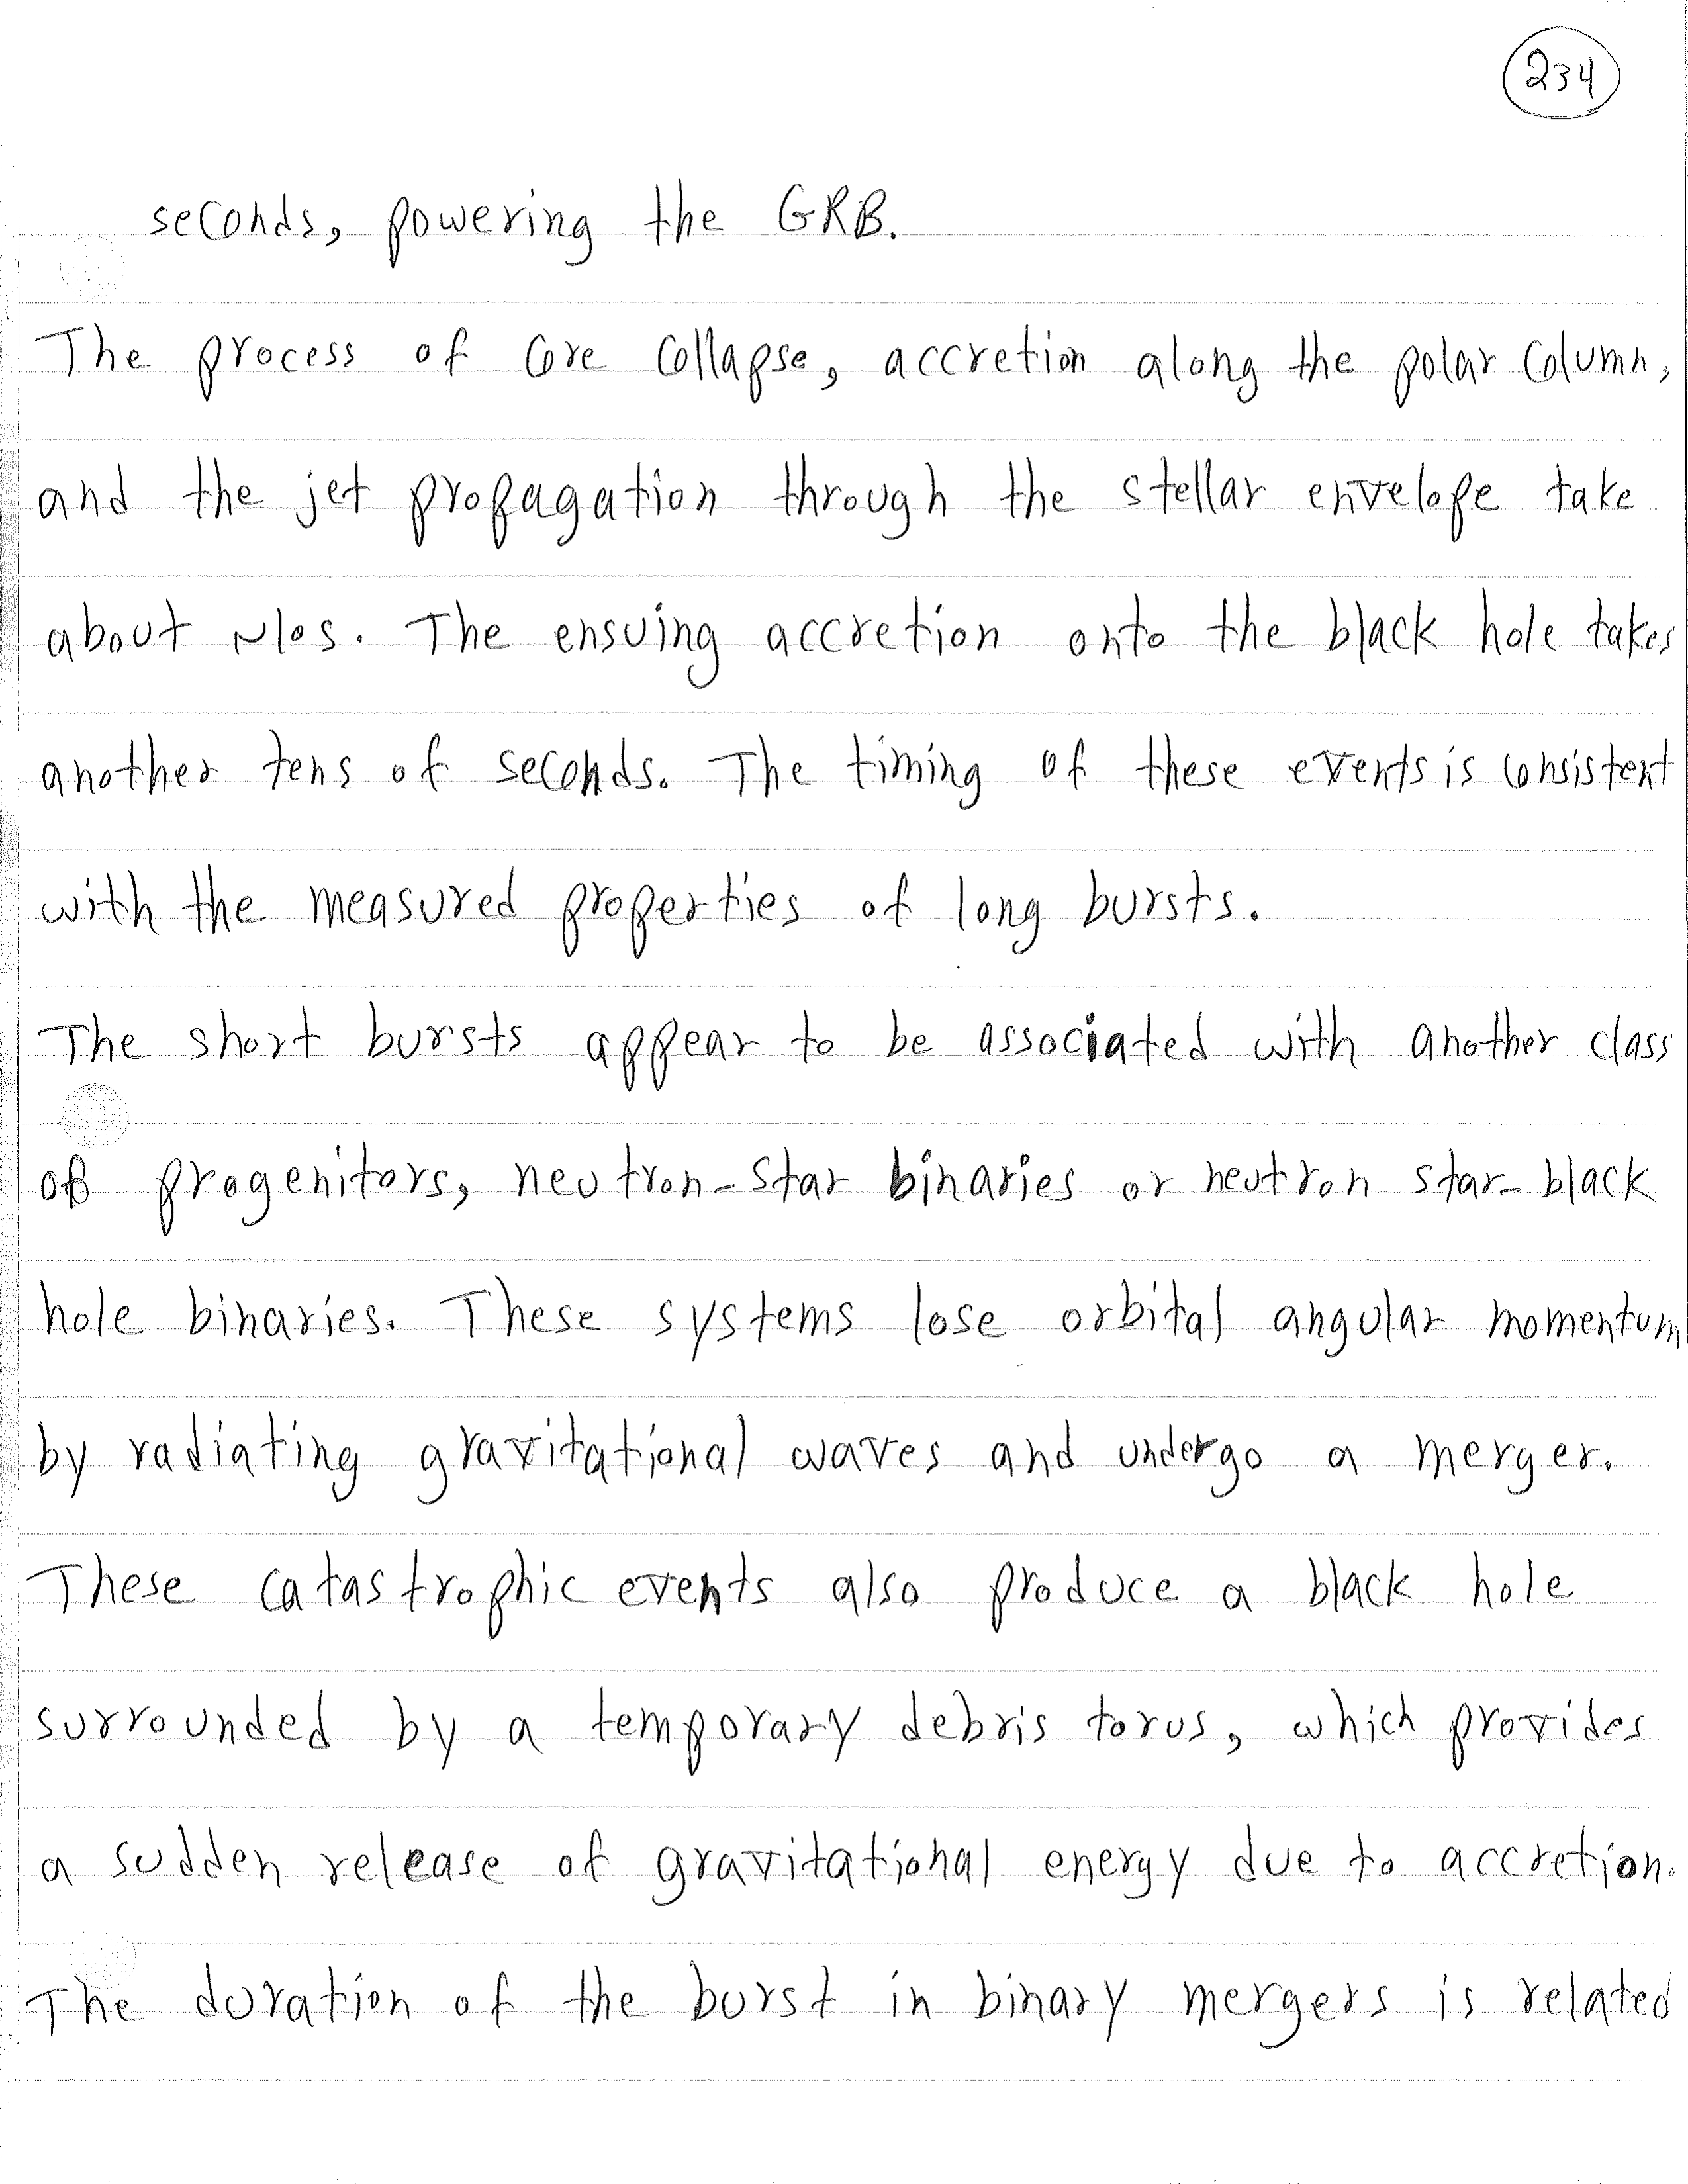 234
seconds, powering the GRB.
The process of core collapse, accretion along the polar column,
and the jet propagation through the stellar envelope take
about ~10s. The ensuing accretion onto the black hole takes
another tens of seconds. The timing of these events is consistent
with the measured properties of long bursts.
The short bursts appear to be associated with another class
of progenitors, neutron-star binaries or neutron star-black
hole binaries. These systems lose orbital angular momentum
by radiating gravitational waves and undergo a merger.
These catastrophic events also produce a black hole
surrounded by a temporary debris torus, which provides
a sudden release of gravitational energy due to accretion.
The duration of the burst in binary mergers is related